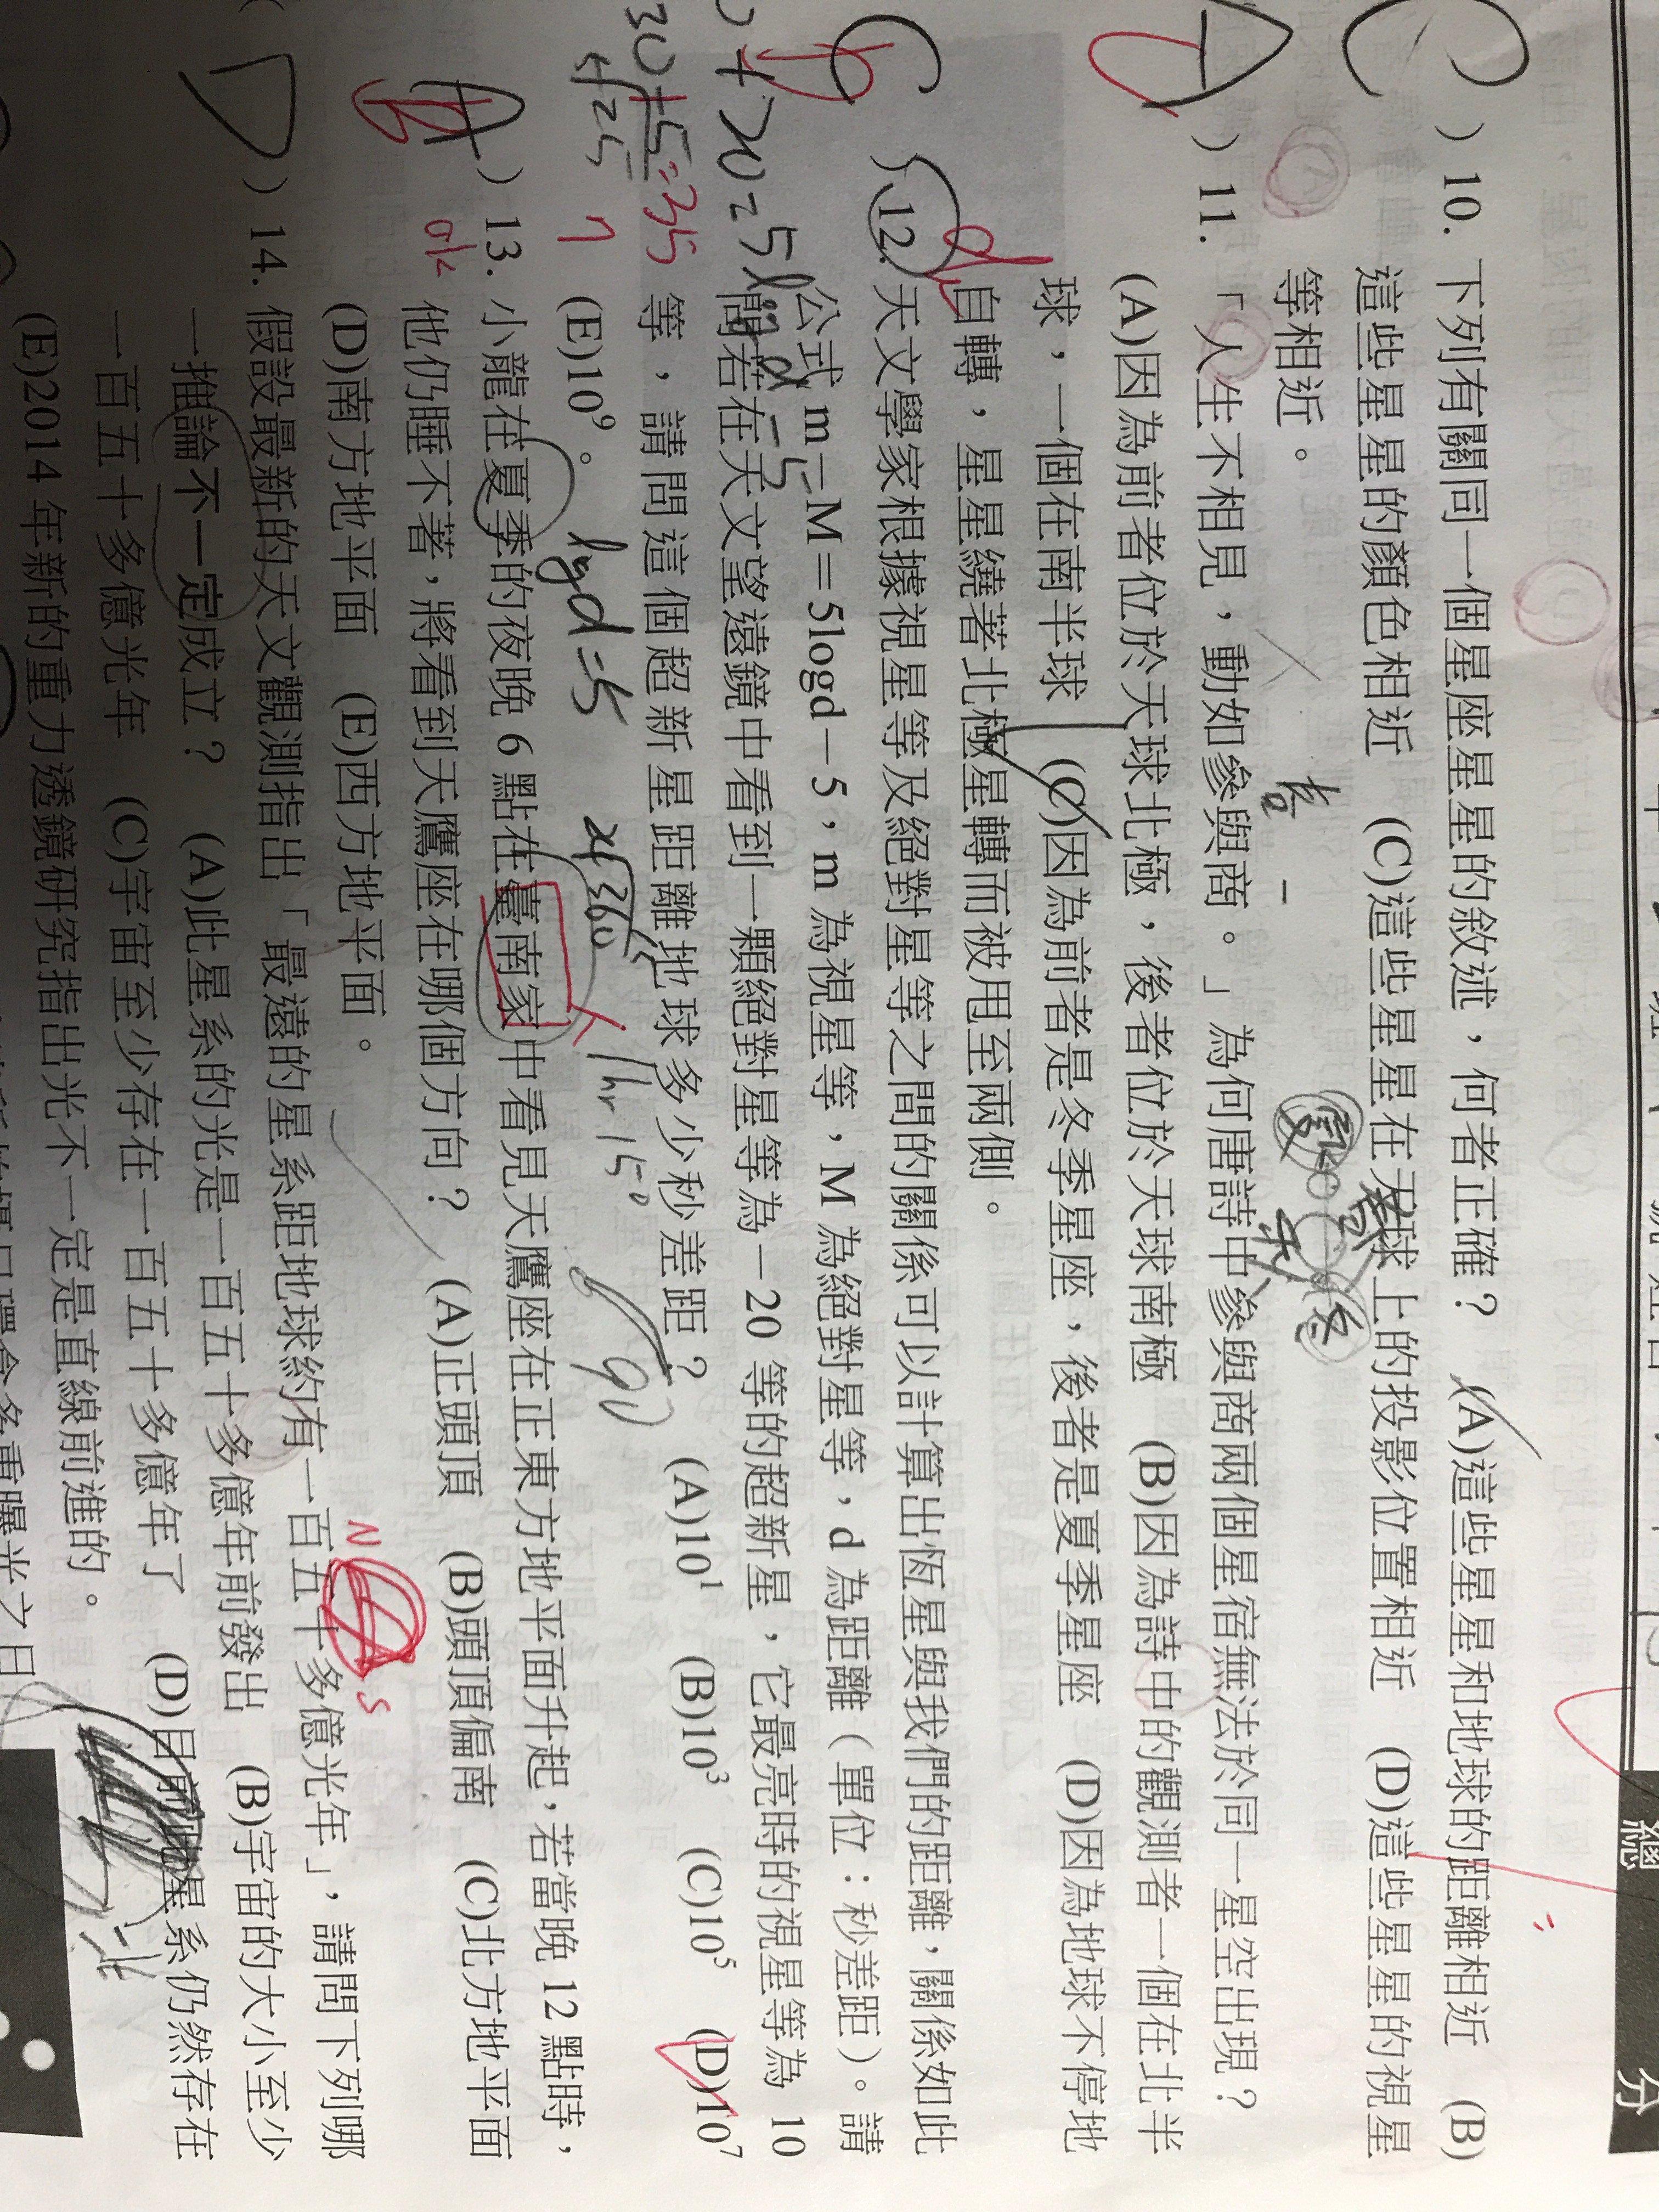 總 分
C )10. 下列有關同一個星座星星的敘述，何者正確？ (A)這些星星和地球的距離相近 (B)
這些星星的顏色相近 (C)這些星星在天球上的投影位置相近 (D)這些星星的視星
等相近。
)11. 「人生不相見，動如參與商。」為何唐詩中參與商兩個星宿無法於同一星空出現？
(A)因為前者位於天球北極，後者位於天球南極 (B)因為詩中的觀測者一個在北半
球，一個在南半球 (C)因為前者是冬季星座，後者是夏季星座 (D)因為地球不停地
自轉，星星繞著北極星轉而被甩至兩側。
C )12. 天文學家根據視星等及絕對星等之間的關係可以計算出恆星與我們的距離，關係如此
公式 m－M＝5logd－5，m 為視星等，M 為絕對星等，d 為距離（單位：秒差距）。請
問若在天文望遠鏡中看到一顆絕對星等為－20 等的超新星，它最亮時的視星等為 10
等，請問這個超新星距離地球多少秒差距？ (A)10¹ (B)10³ (C)10⁵ (D)10⁷
(E)10⁹。
30+5=35
7
logd=5
1hr 15°
90
A )13. 小龍在夏季的夜晚 6 點在臺南家中看見天鷹座在正東方地平面升起，若當晚 12 點時，
他仍睡不著，將看到天鷹座在哪個方向？ (A)正頭頂 (B)頭頂偏南 (C)北方地平面
(D)南方地平面 (E)西方地平面。
N
S
D )14. 假設最新的天文觀測指出「最遠的星系距地球約有一百五十多億光年」，請問下列哪
一推論不一定成立？ (A)此星系的光是一百五十多億年前發出 (B)宇宙的大小至少
一百五十多億光年 (C)宇宙至少存在一百五十多億年了 (D)目前此星系仍然存在
(E)2014 年新的重力透鏡研究指出光不一定是直線前進的。